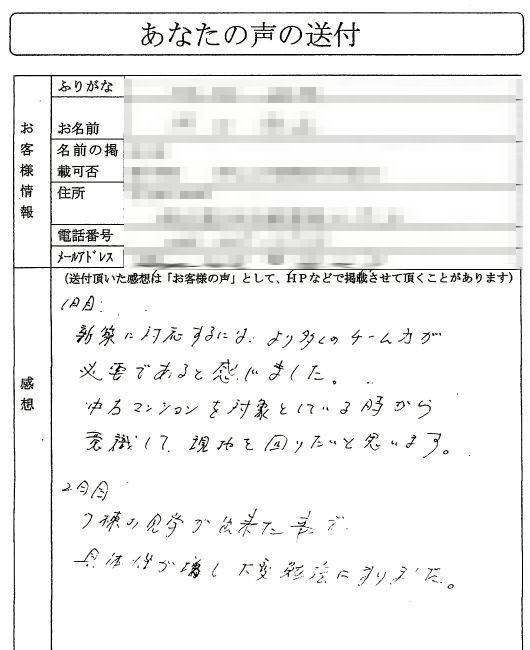 あなたの声の送付
お客様情報
ふりがな
お名前
名前の掲
載可否
住所
電話番号
ﾒｰﾙｱﾄﾞﾚｽ
感想
(送付頂いた感想は「お客様の声」として、HPなどで掲載させて頂くことがあります)
1日目:
新築に対応するには、より多くのチーム力が
必要であると感じました。
中古マンションを対象としている時から
意識して、現地を回りたいと思います。
2日目
7棟の見学が出来た事で
具体性が増し大変勉強になりました。